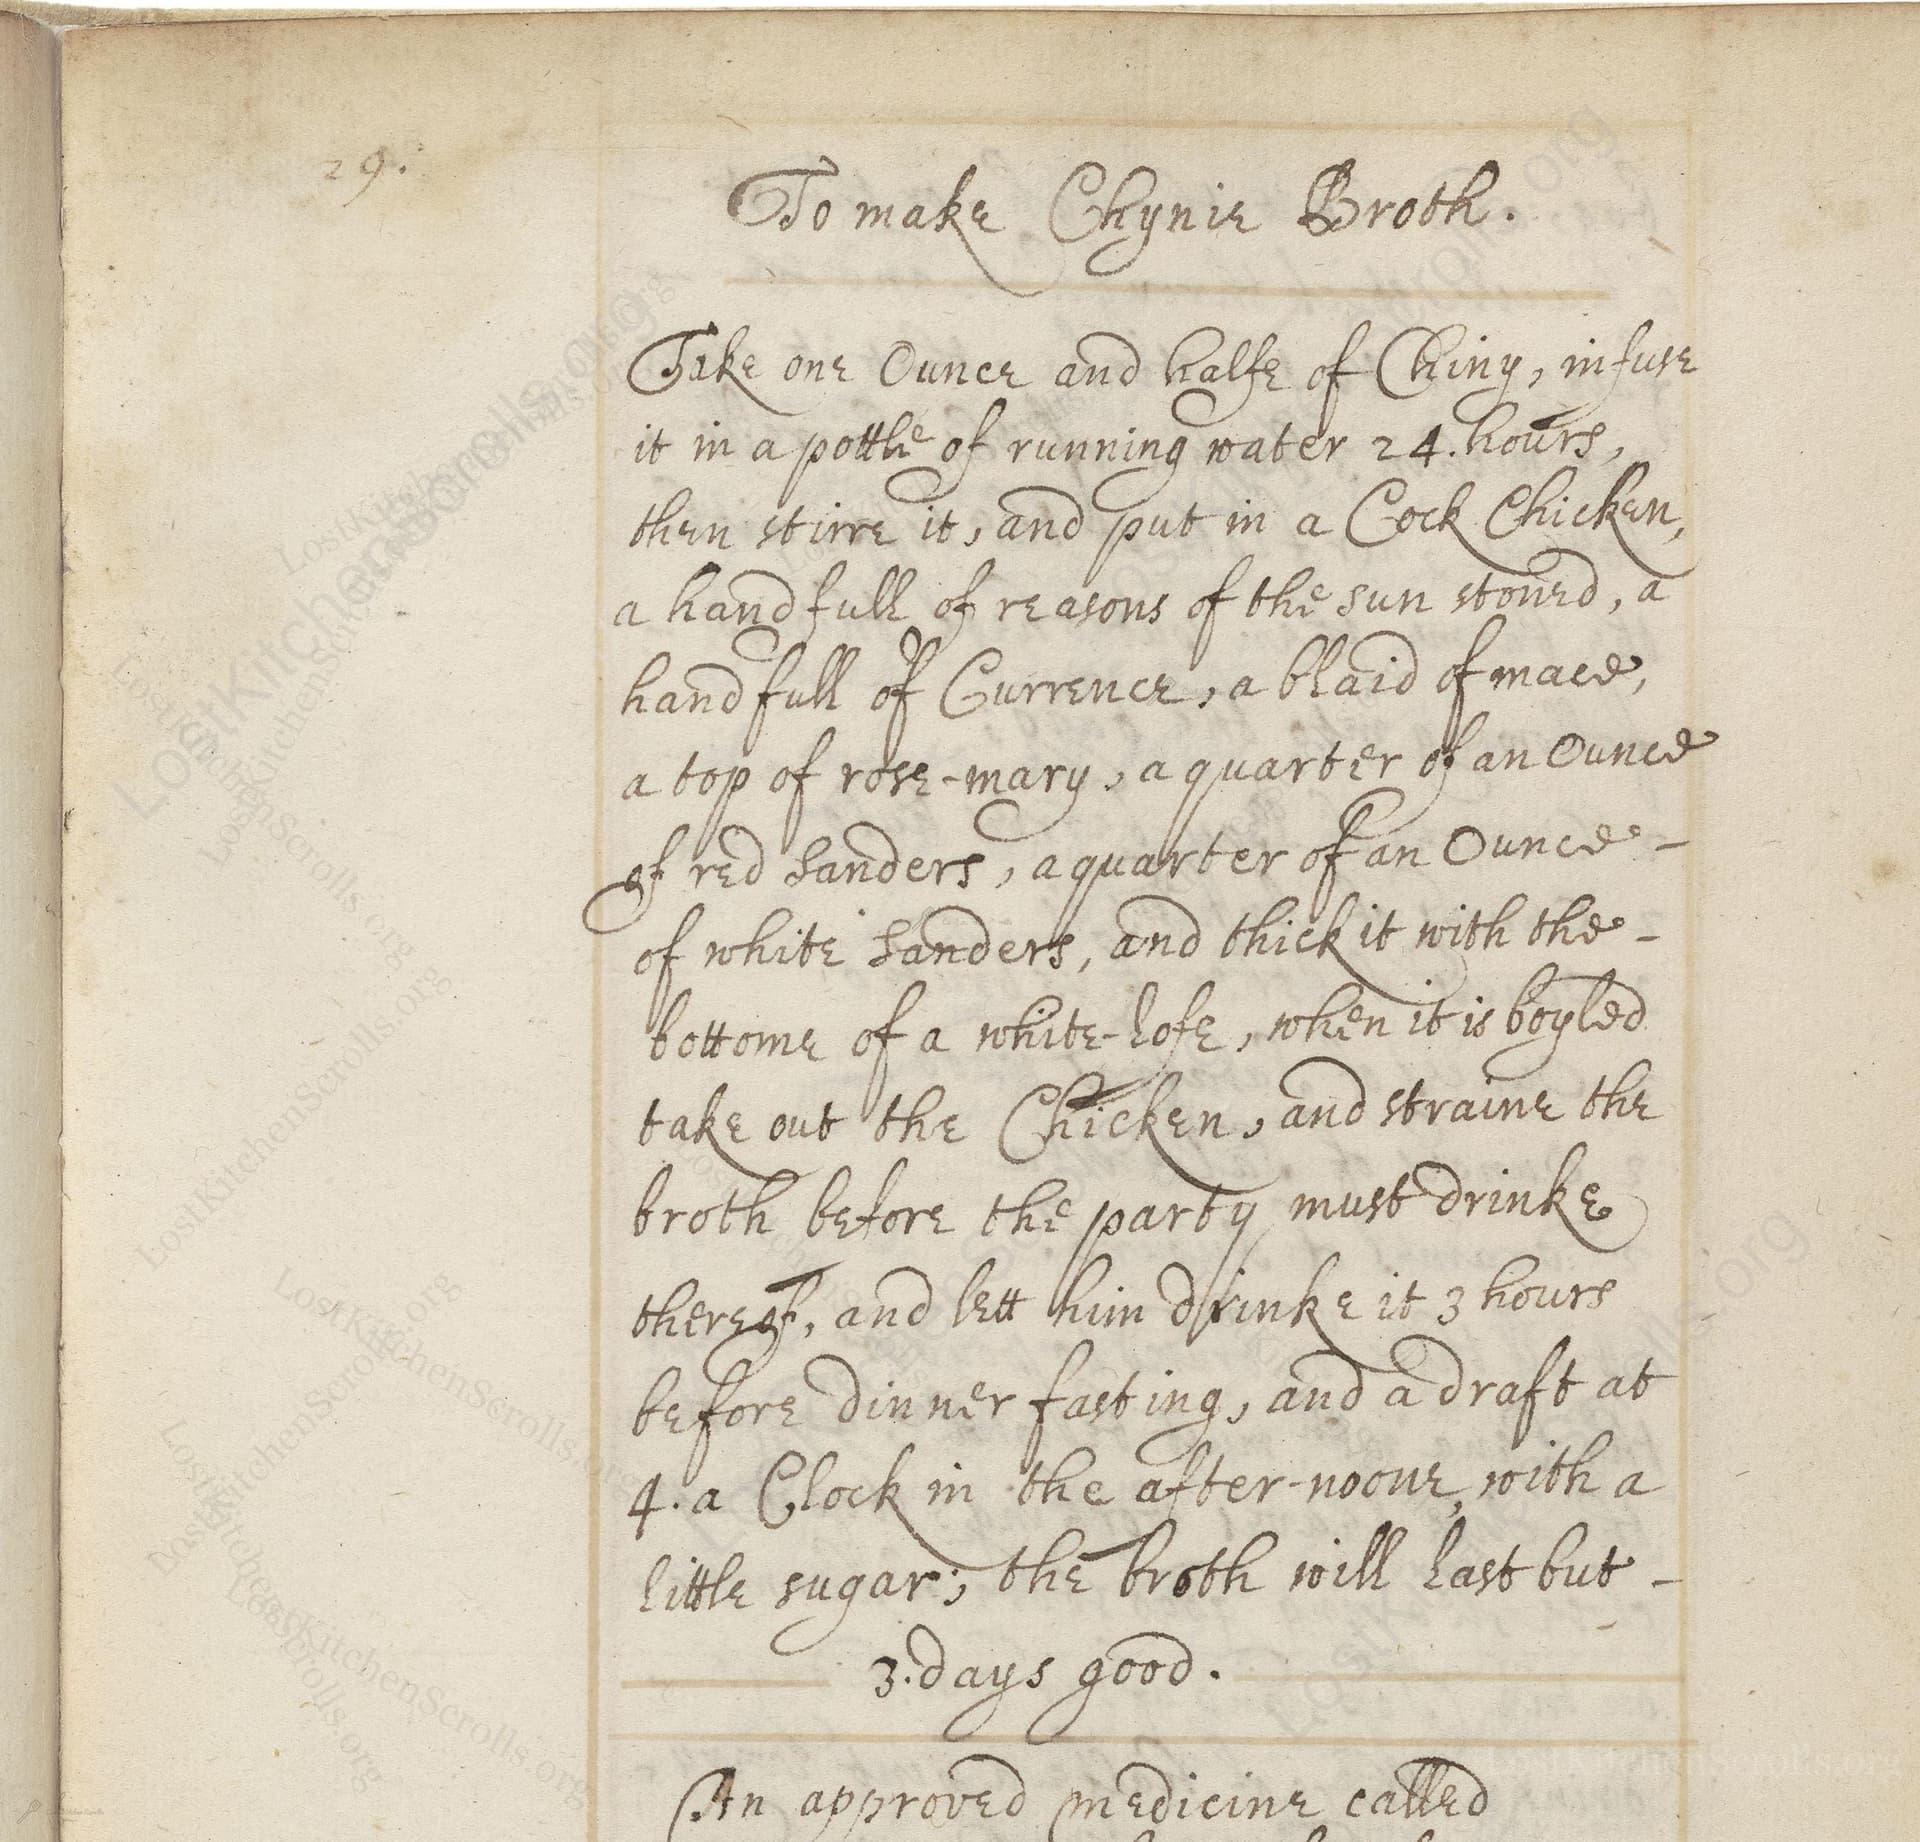 29.
To make Chynie Broth.
Take one Ounce and halfe of Chiny, infuse
it in a pottle of running water 24. hours,
then stirre it, and put in a Cock Chicken,
a handfull of reasons of the sun stoned, a
handfull of Currence, a blaid of mace,
a top of rose-mary, a quarter of an Ounce
of red sanders, a quarter of an Ounce -
of white sanders, and thick it with the -
bottome of a white-lofe, when it is boyled
take out the Chicken, and straine the
broth before the party must drinke
thereof, and lett him drinke it 3 hours
before dinner fasting, and a draft at
4. a Clock in the after-noone, with a
little sugar; the broth will last but -
3. days good.
An approved medicine called